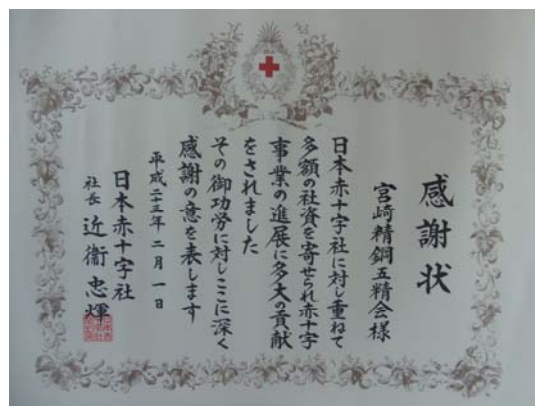 感謝状
宮崎精鋼五精会様
日本赤十字社に対し重ねて
多額の社資を寄せられ赤十字
事業の進展に多大の貢献
をされました
その御功労に対しここに深く
感謝の意を表します
平成二十三年二月一日
日本赤十字社
社長 近衞忠煇